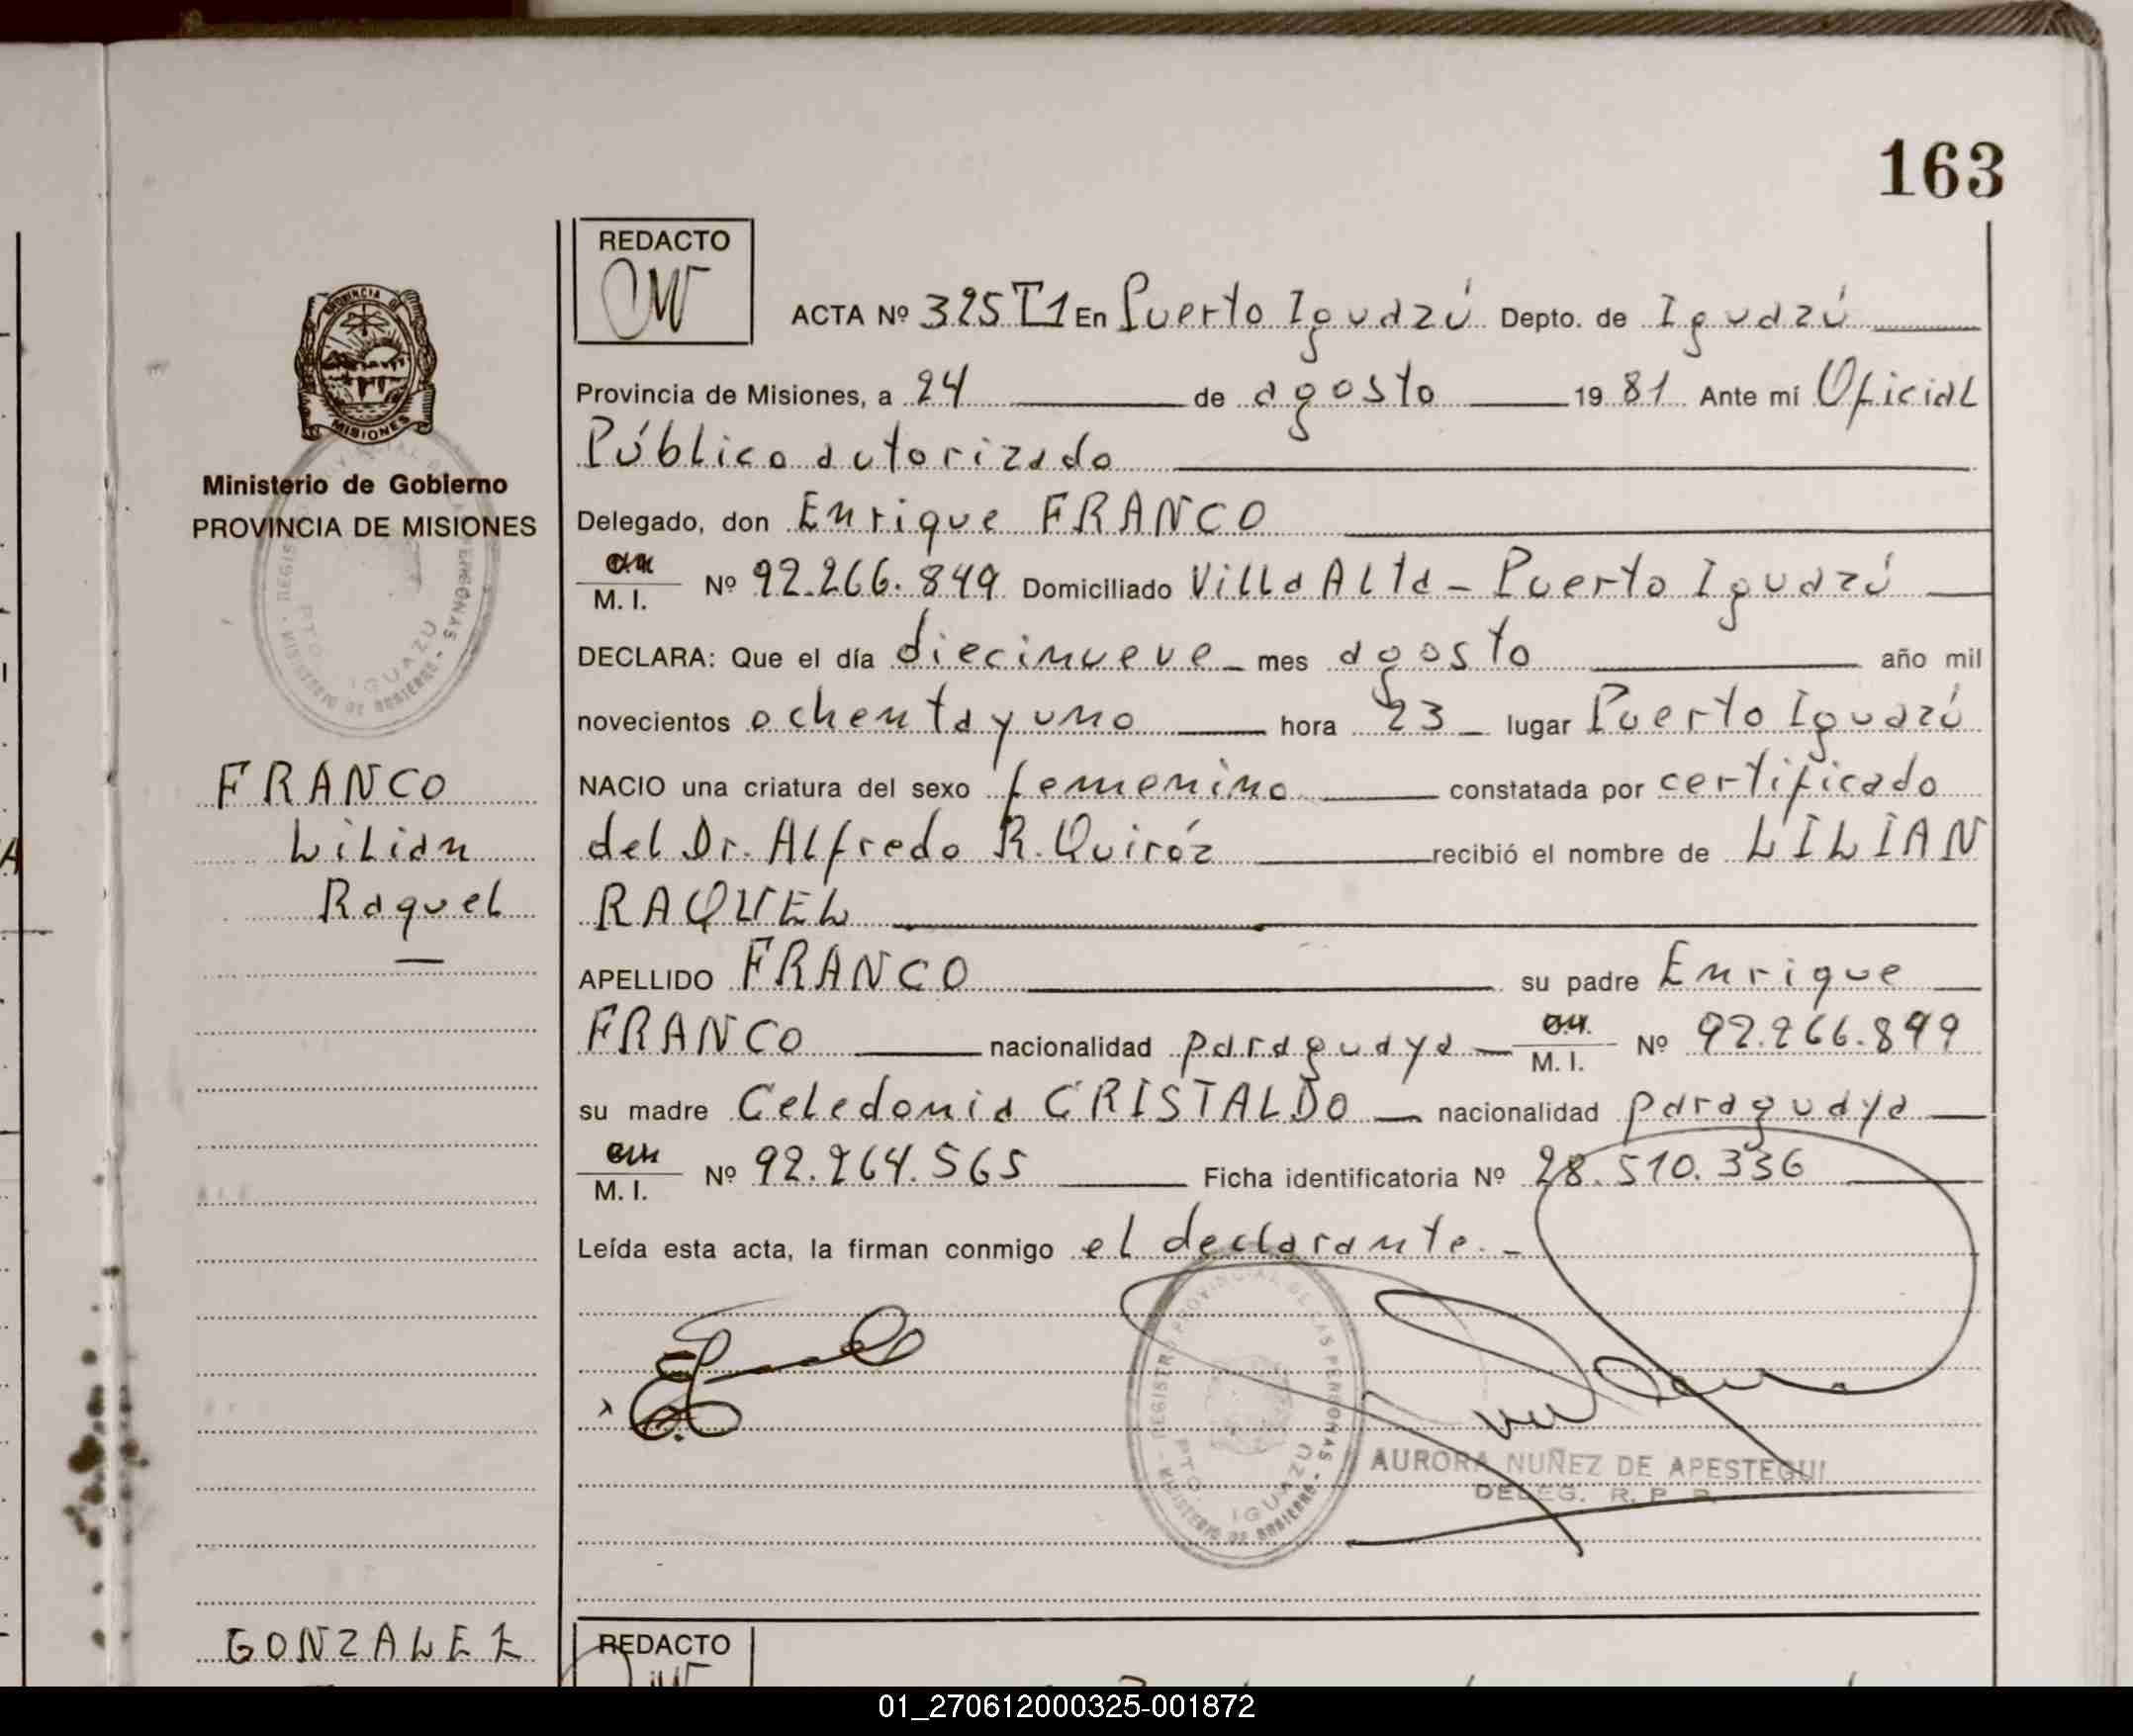 163
REDACTO
ACTA Nº 325 T1 En Puerto Iguazú Depto. de Iguazú
Provincia de Misiones, a 24 de agosto 1981 Ante mí Oficial
Público autorizado
Delegado, don Enrique FRANCO
M. I. Nº 92.266.849 Domiciliado Villa Alta - Puerto Iguazú
DECLARA: Que el día diecinueve mes agosto año mil
novecientos ochenta y uno hora 23 lugar Puerto Iguazú
NACIO una criatura del sexo femenino constatada por certificado
del Dr. Alfredo R. Quiróz recibió el nombre de LILIAN
RAQUEL
APELLIDO FRANCO su padre Enrique
FRANCO nacionalidad paraguaya M. I. Nº 92.266.899
su madre Celedonia CRISTALDO nacionalidad paraguaya
M. I. Nº 92.264.565 Ficha identificatoria Nº 28.510.336
Leída esta acta, la firman conmigo el declarante.-
REGISTRO PROVINCIAL DE LAS PERSONAS
PTO IGUAZU
MINISTERIO DE GOBIERNO
AURORA NUÑEZ DE APESTEGUI
DELEG. R. P. P.
PROVINCIA DE
MISIONES
Ministerio de Gobierno
PROVINCIA DE MISIONES
PTO IGUAZU
FRANCO
Lilian
Raquel
GONZALEZ
REDACTO
01_270612000325-001872